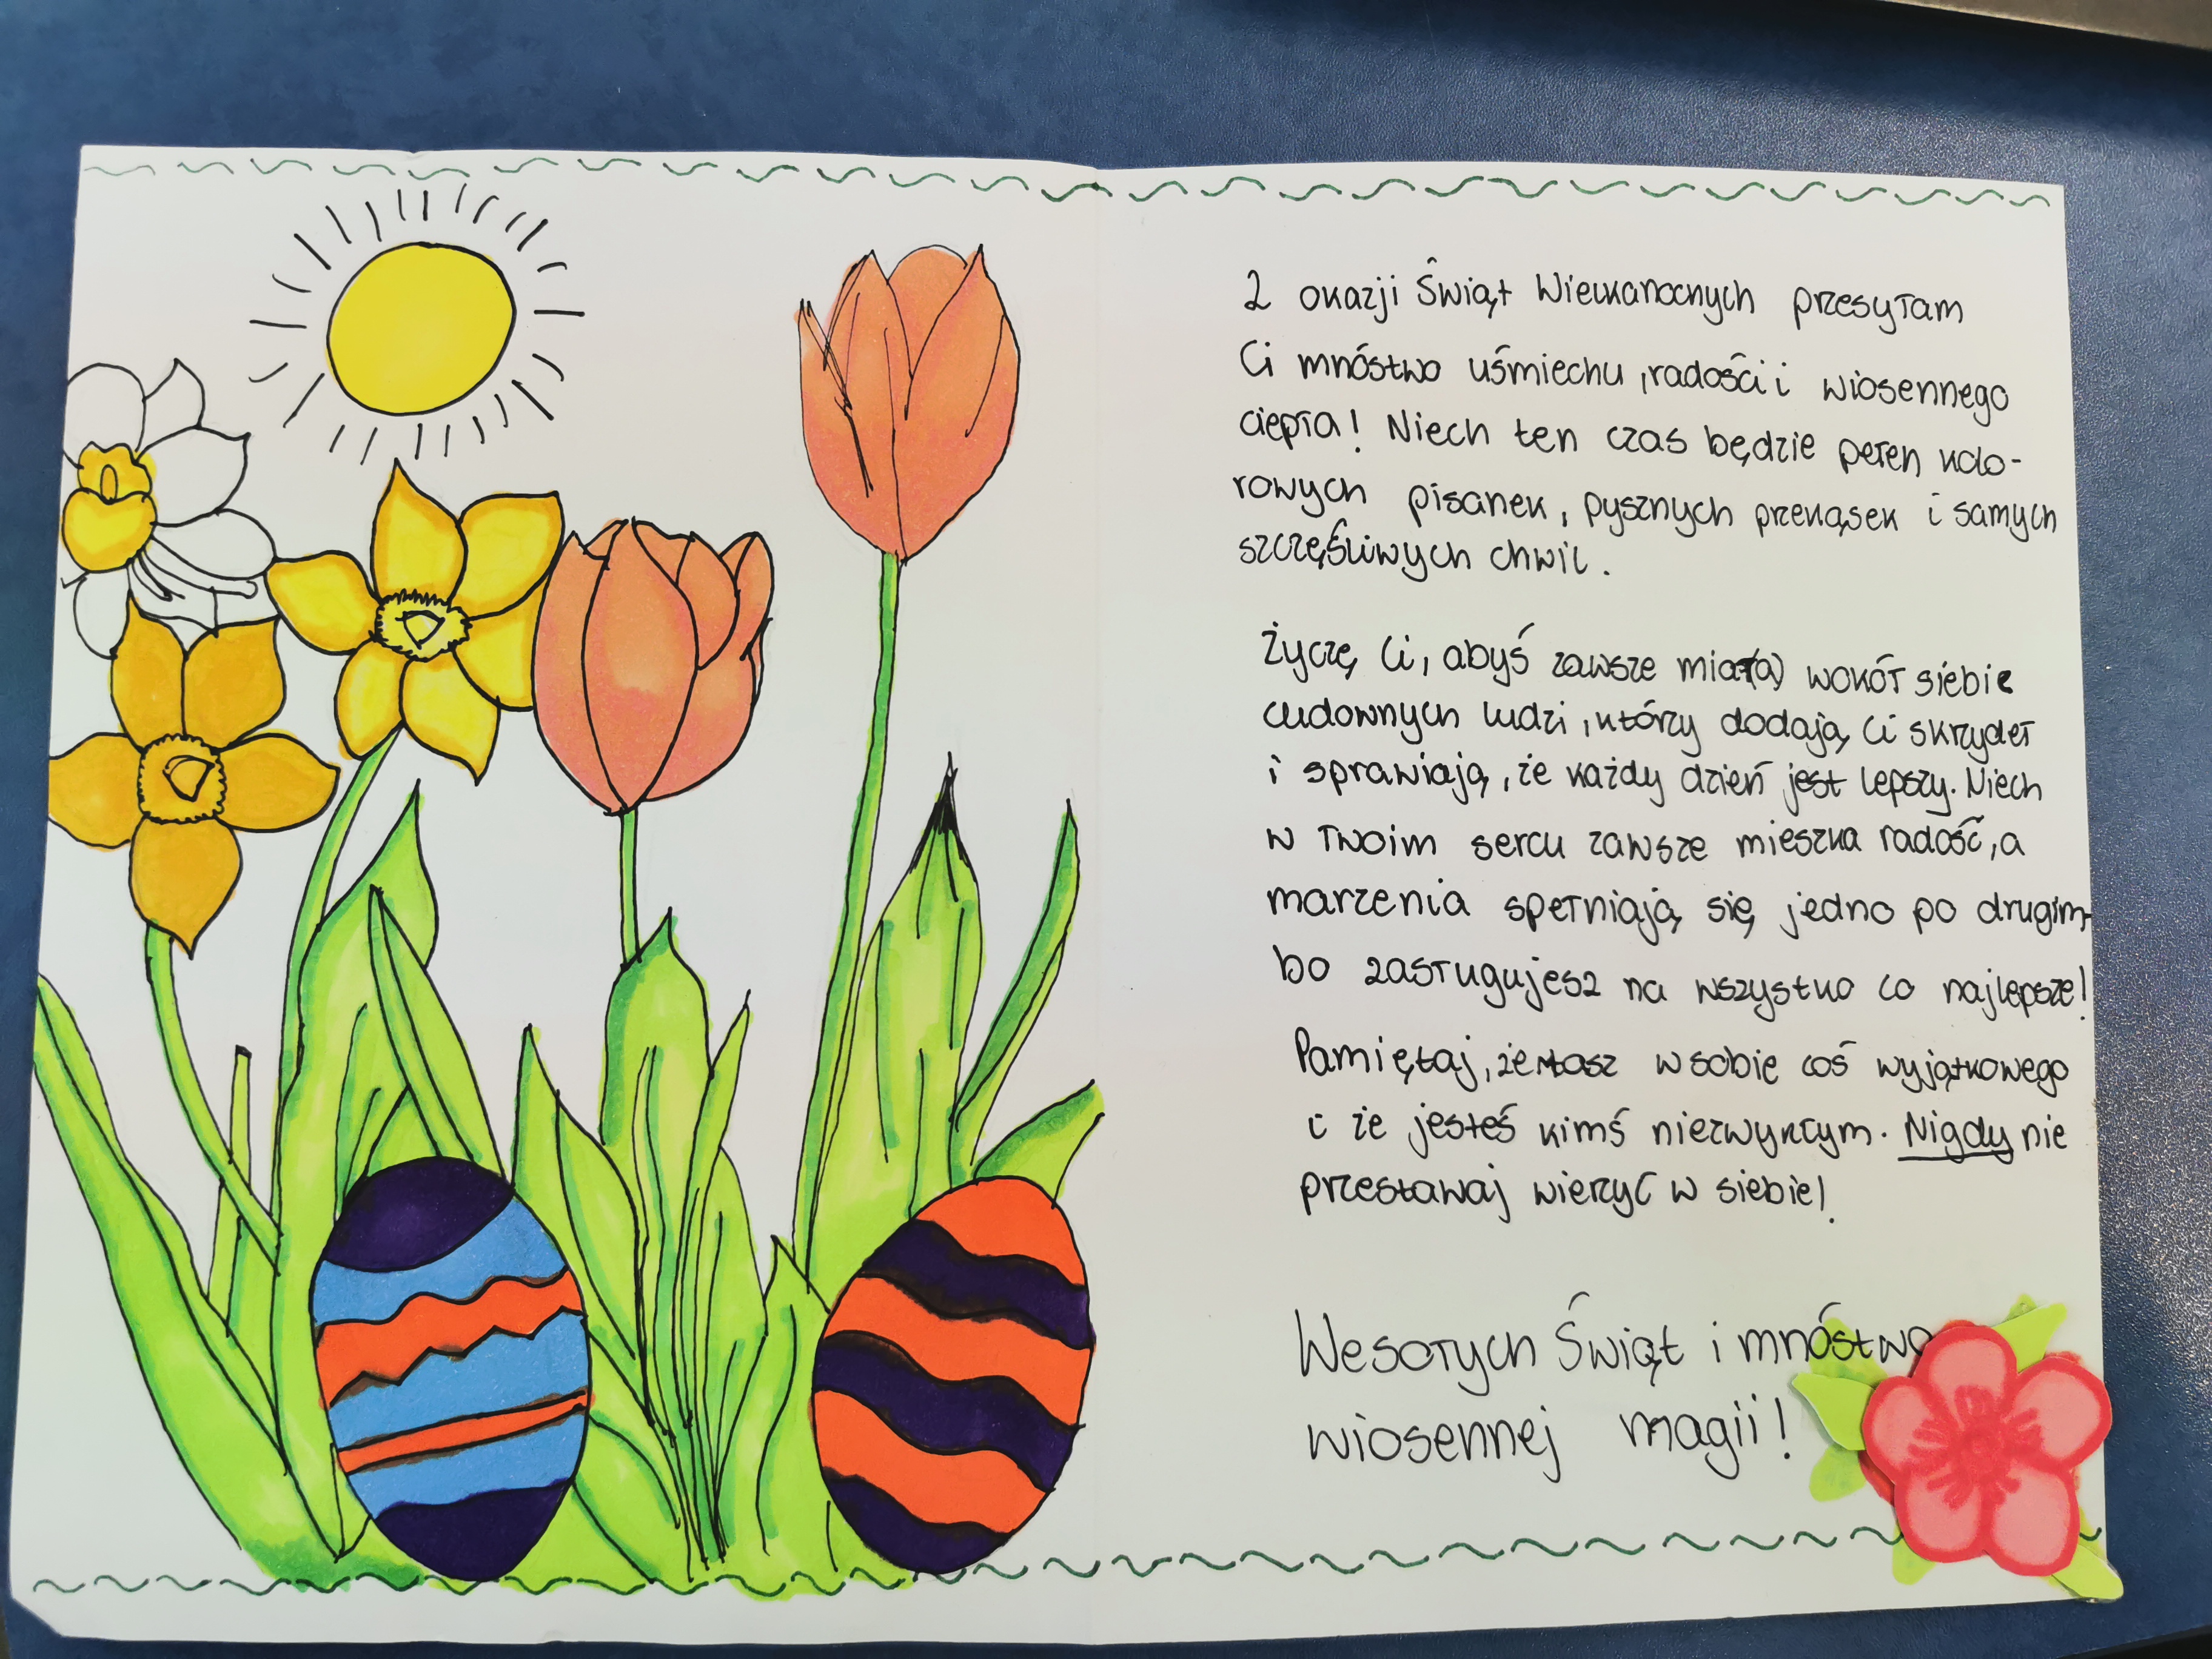 Z okazji Świąt Wielkanocnych przesyłam
Ci mnóstwo uśmiechu, radości i wiosennego
ciepła! Niech ten czas będzie pełen kolo-
rowych pisanek, pysznych przekąsek i samych
szczęśliwych chwil.
Życzę Ci, abyś zawsze miał(a) wokół siebie
cudownych ludzi, którzy dodają Ci skrzydeł
i sprawiają, że każdy dzień jest lepszy. Niech
w Twoim sercu zawsze mieszka radość, a
marzenia spełniają się jedno po drugim,
bo zasługujesz na wszystko co najlepsze!
Pamiętaj, że masz w sobie coś wyjątkowego
i że jesteś kimś niezwykłym. Nigdy nie
przestawaj wierzyć w siebie!
Wesołych Świąt i mnóstwo
wiosennej magii!